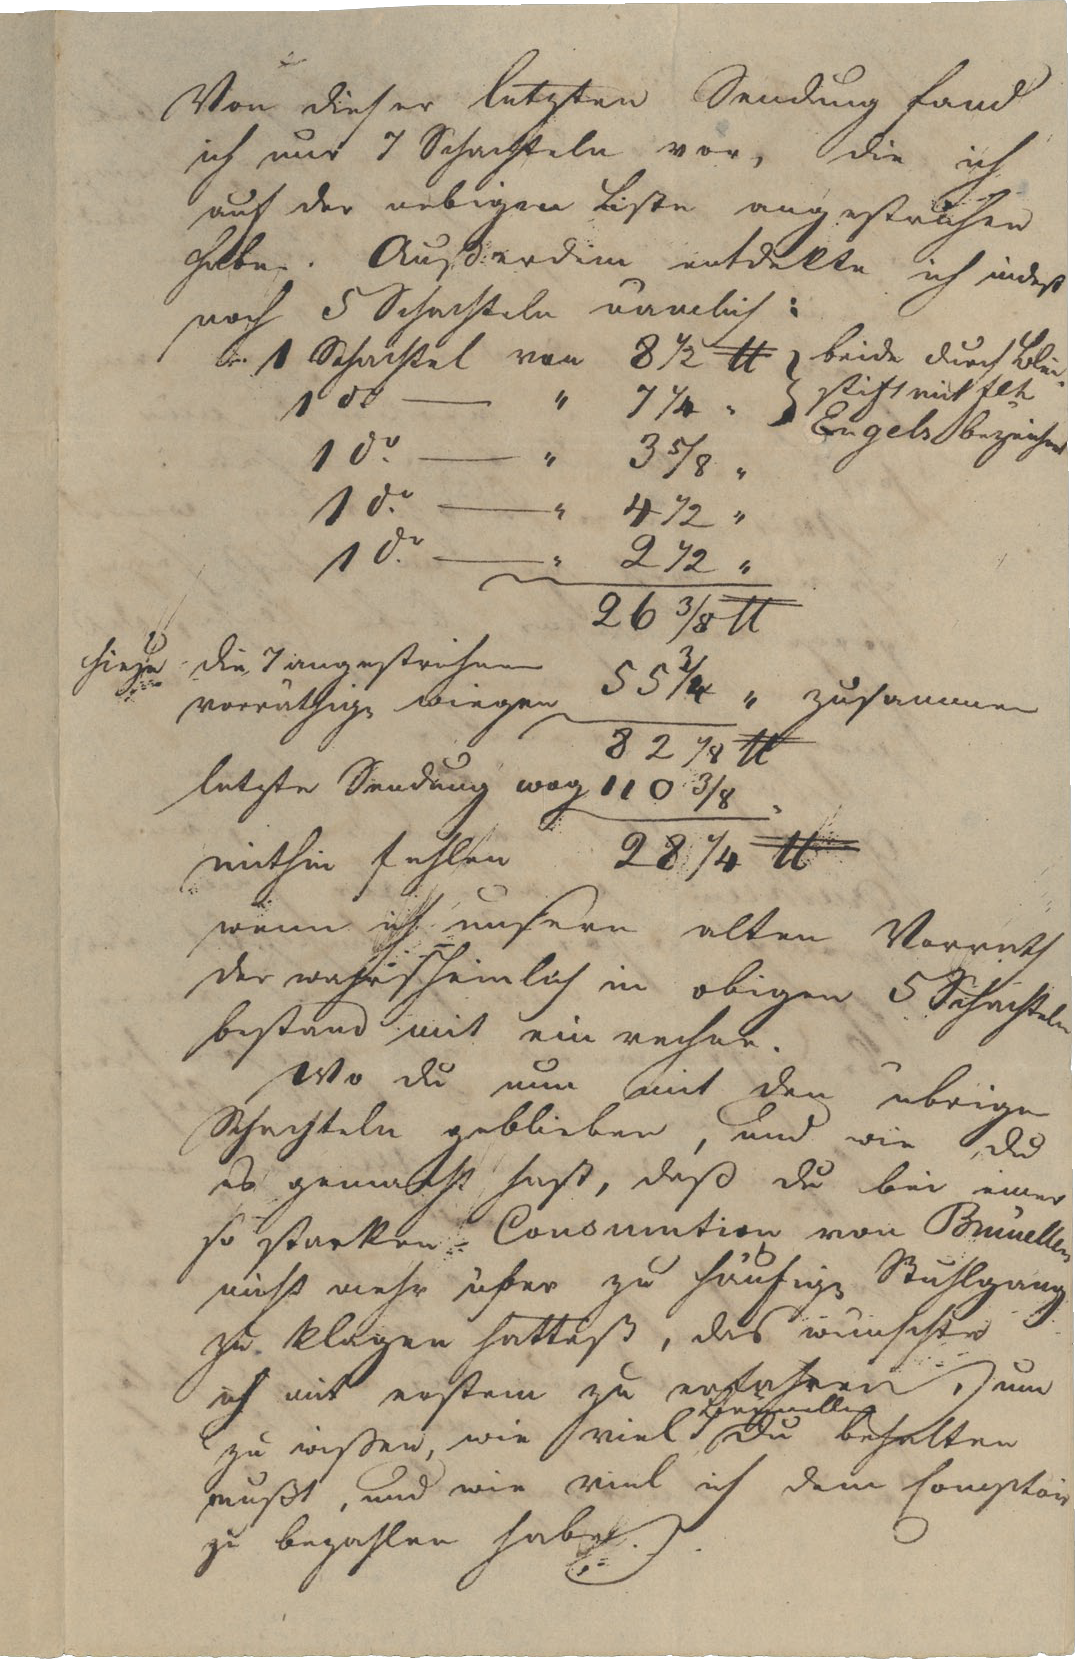 Von dieser letzten Sendung fand
ich nur 7 Schachteln vor, die ich
auf der nebigen Liste angestrichen
habe. Außerdem entdekte ich indeß
noch 5 Schachteln nämlich:
1 Schachtel von 8 1/2 ℔ } beide durch Blei-
1 do — " 7 1/4 " } stift mit
Engels bezeichnet
1 do. — " 3 5/8 "
1 do. — " 4 1/2 "
1 do. — " 2 1/2 "
26 3/8 ℔
hiezu die 7 angestrichnen
vorräthige wiegen 55 3/4 " zusammen
82 1/8 ℔
letzte Sendung wog 110 3/8 "
mithin fehlen 28 1/4 ℔
wenn ich unsern alten Vorrath
der wahrscheinlich in obigen 5 Schachteln
bestand mit ein rechne.
Wo du nun mit den übrigen
Schachteln geblieben, und wie du
es gemacht hast, daß du bei einer
so starken Consumtion von Brünellen
nicht mehr über zu häufige Stuhlgang
zu klagen hattest, das wünschte
ich mit erstem zu erfahren, um
zu wissen, wie viel Brünellen du behalten
mußt, und wie viel ich dem Comptoir
zu bezahlen habe.